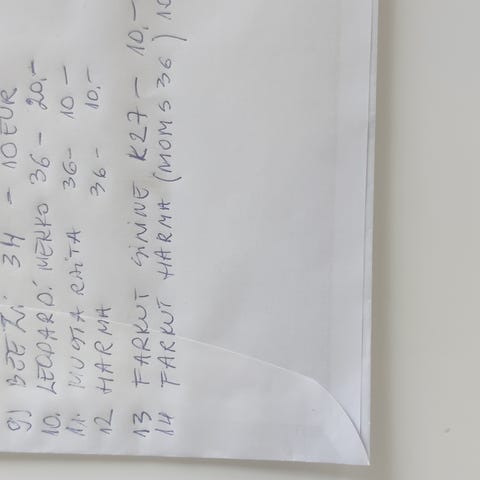 9) BEEZi 34 - 10 EUR
10. LEOPARDI MEKKO 36 - 20,-
11. MUSTA RAITA 36 - 10 -
12 HARMA 36 - 10,-
13 FARKUT SININE K27 - 10,-
14 FARKUT HARMA (MOMS 36) 10